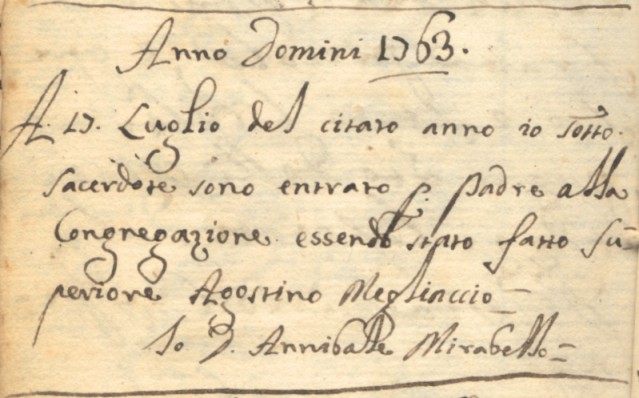 Anno Domini 1763.
A. 17. Luglio del citato anno io sotto.
sacerdote sono entrato p. Padre alla
Congregazione essendo stato fatto Su=
periore Agostino Megliaccio=
Io D. Annibale Mirabello=